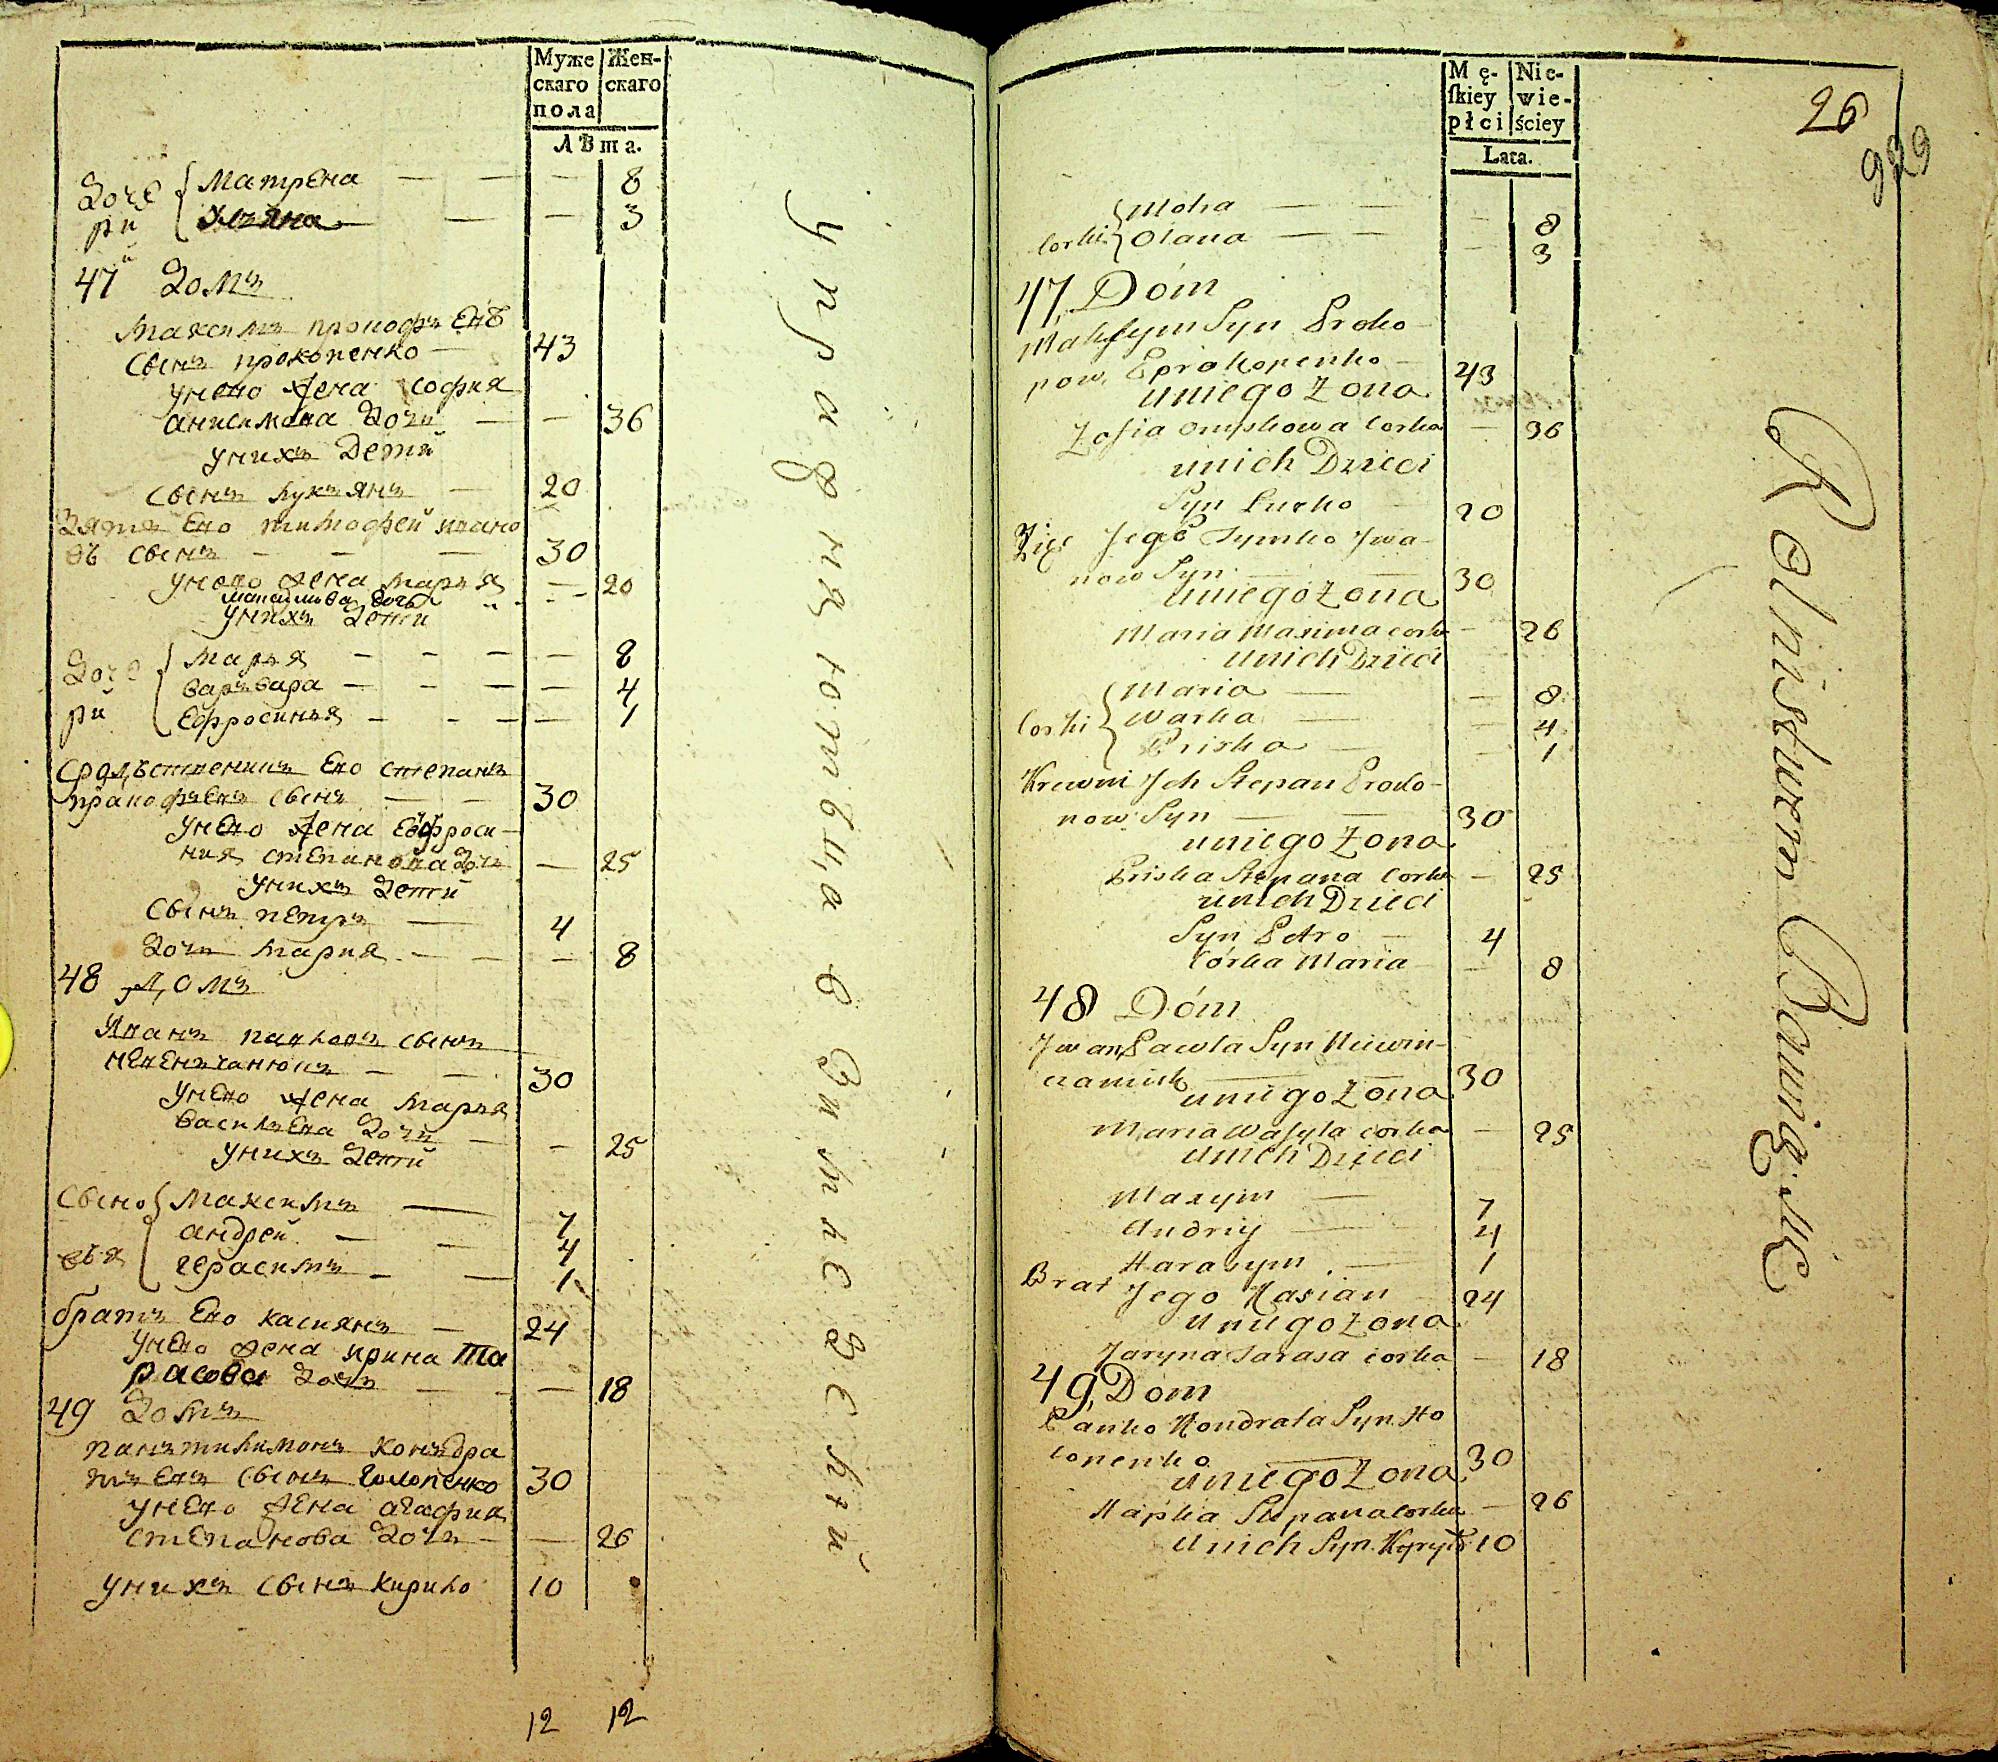 Муже
скаго
пола
Жен-
скаго
Лѣта.
Доче
ри
Матрена — — — 8
Ульяна — — 3
47й Домъ
Максимъ прокофъевъ
сынъ прокопенко — 43
унево жена софия
анисимова дочь — — 36
унихъ Дети
сынъ лукъянъ — 20
Зятъ ево тимофей ивано
въ сынъ — — — 30
унево жена маръя — 20
максимова дочь
унихъ дети
Доче
ри
маръя — — — — 8
варъвара — — — — 4
Ефросинья — — — — 1
сродъственикъ ево степанъ
пракофъевъ сынъ — — 30
унево жена Ефроси-
ния степанова дочь — 25
унихъ дети
сынъ петръ — 4
дочь мария — — — 8
48 Домъ
Иванъ павловъ сынъ
невенъчанюкъ — — 30
унево жена маръя
васильева дочь — — 25
унихъ дети
сыно
въя
максимъ — 7
андрей — — 4
герасимъ — — 1
братъ ево касиянъ — 24
унево жена ирина Та
расова дочь — — — 18
49 Домъ
панътилимонъ конъдра
тъевъ сынъ Голопенко 30
унево жена агафия
степанова дочь — — 26
унихъ сынъ кирило 10
12 12
упражняютъца в Зимледелии
26
929
Mę-
skiey
płci
Nie-
wie-
ściey
Lata.
Corki
Motra — — — 8
Olana — — — 3
47, Dóm
Maksym Syn Proko-
pow, Prokopenko — 43
uniego Zona
Zofia Omskowa Corka — 36
unich Dzieci
Syn Lucko — 20
Zięć Jego Tymko Jwa-
now Syn — — 30
uniego Zona
Maria Maxima Corka — 26
unich Dzieci
Corki
Maria — — 8
Warka — — 4
Priska — — 1
Krewni Jch Stepan Proko-
pow Syn — — 30
uniego Zona
Priska Stepana Corka — 25
unich Dzieci
Syn Petro — 4
Córka Maria — 8
48 Dóm
Jwan Pawla Syn Niewin-
czaniuk — — 30
uniego Zona
Maria Wasyla Corka — 25
unich Dzieci
Maxym — 7
Andriy — 4
Harasym — 1
Brat Jego Kasian — 24
uniego Zona
Jaryna Tarasa Corka — 18
49, Dom
Panko Kondrata Syn Ho
lopenko — 30
uniego Zona
Hapka Stepana Corka — 26
unich Syn Kyryło 10
Rolnictwem Bawią Się